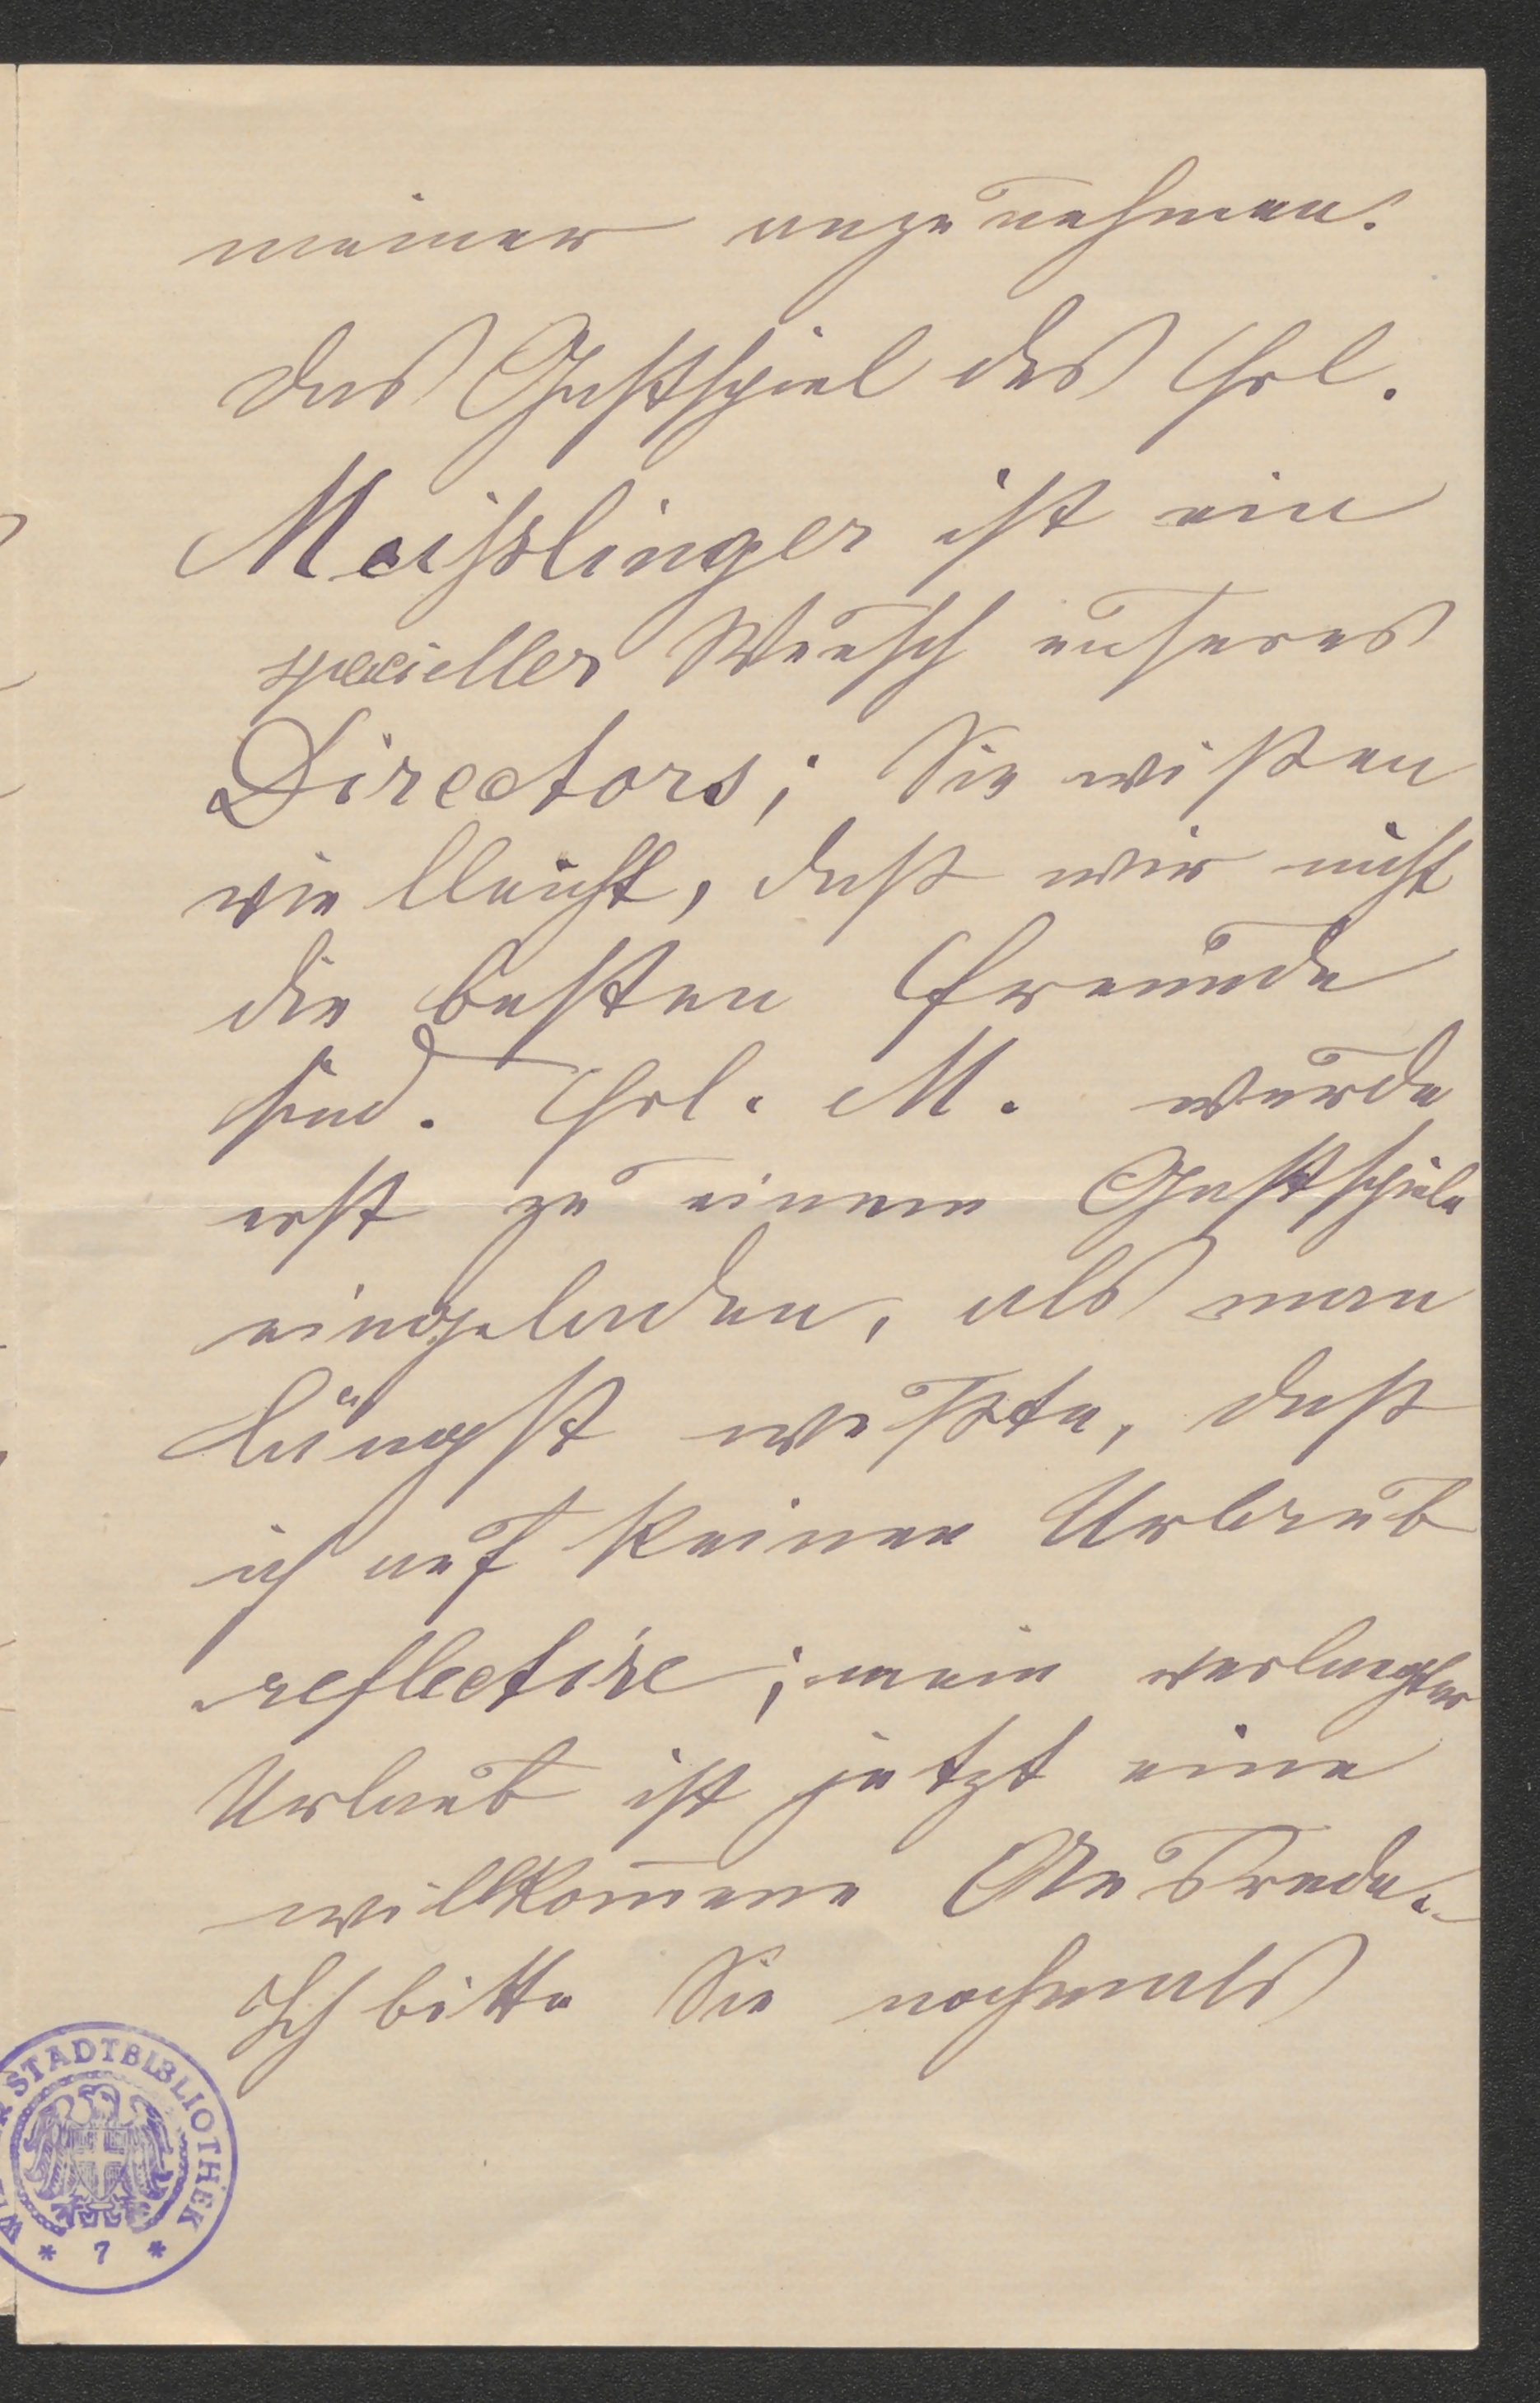 meiner anzunehmen.
Das Gastspiel des Frl.
Meisslinger ist ein
specieller Wunsch unseres
Directors; Sie wißen
vielleicht, daß wir nicht
die besten Freunde
sind. Frl. M. wurde
erst zu einem Gastspiele
eingeladen, als man
längst wußte, daß
ich auf keinen Urlaub
reflectire; mein verlangter
Urlaub ist jetzt eine
willkom̄ene Ausrede.
Ich bitte Sie nochmals
STADTBIBLIOTHEK
* 7 *